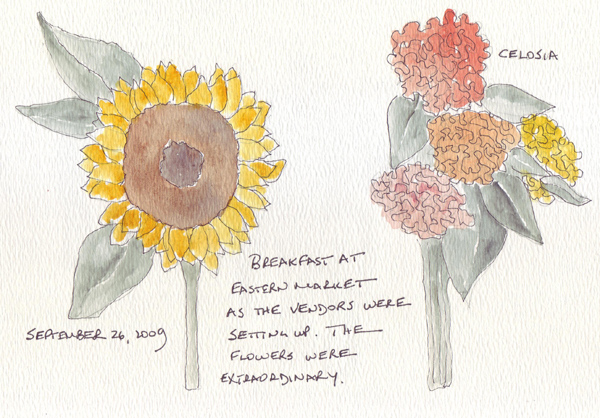 CELOSIA
BREAKFAST AT
EASTERN MARKET
AS THE VENDORS WERE
SETTING UP. THE
FLOWERS WERE
EXTRAORDINARY.
SEPTEMBER 26, 2009